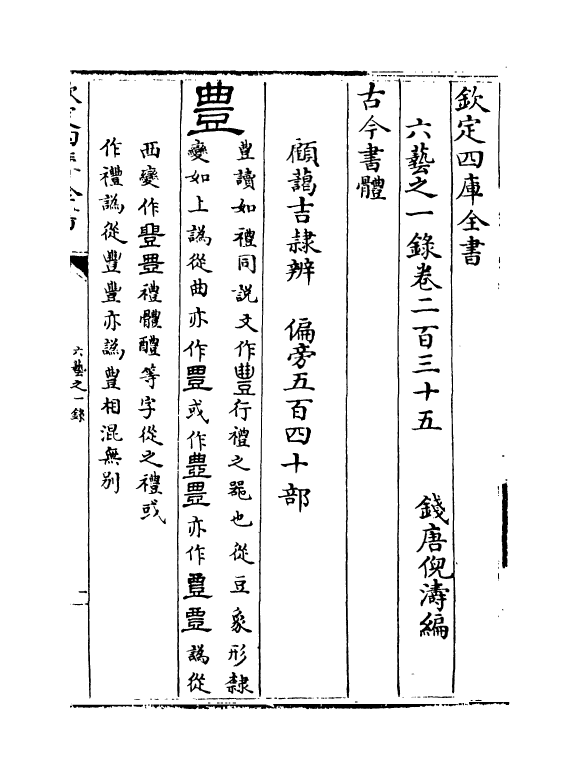 欽定四庫全書
六藝之一錄卷二百三十五
錢唐倪濤編
古今書體
顧藹吉隷辨 偏旁五百四十部
豊
豊讀如禮同說文作豐行禮之噐也從豆象形隷
變如上譌從曲亦作豊或作豊豊亦作豊豊譌從
西變作豊豊禮體醴等字從之禮或
作禮譌從豐豐亦譌豊相混無别
六藝之一錄
一